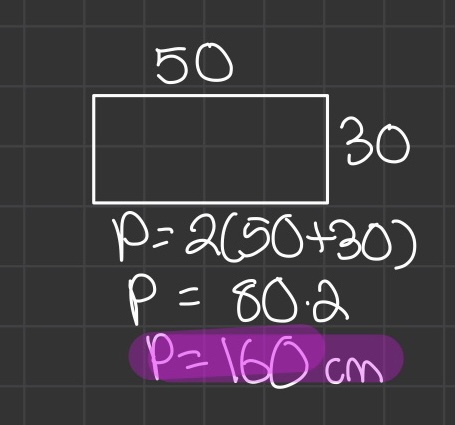 50
30
P=2(50+30)
P = 80·2
P=160 cm